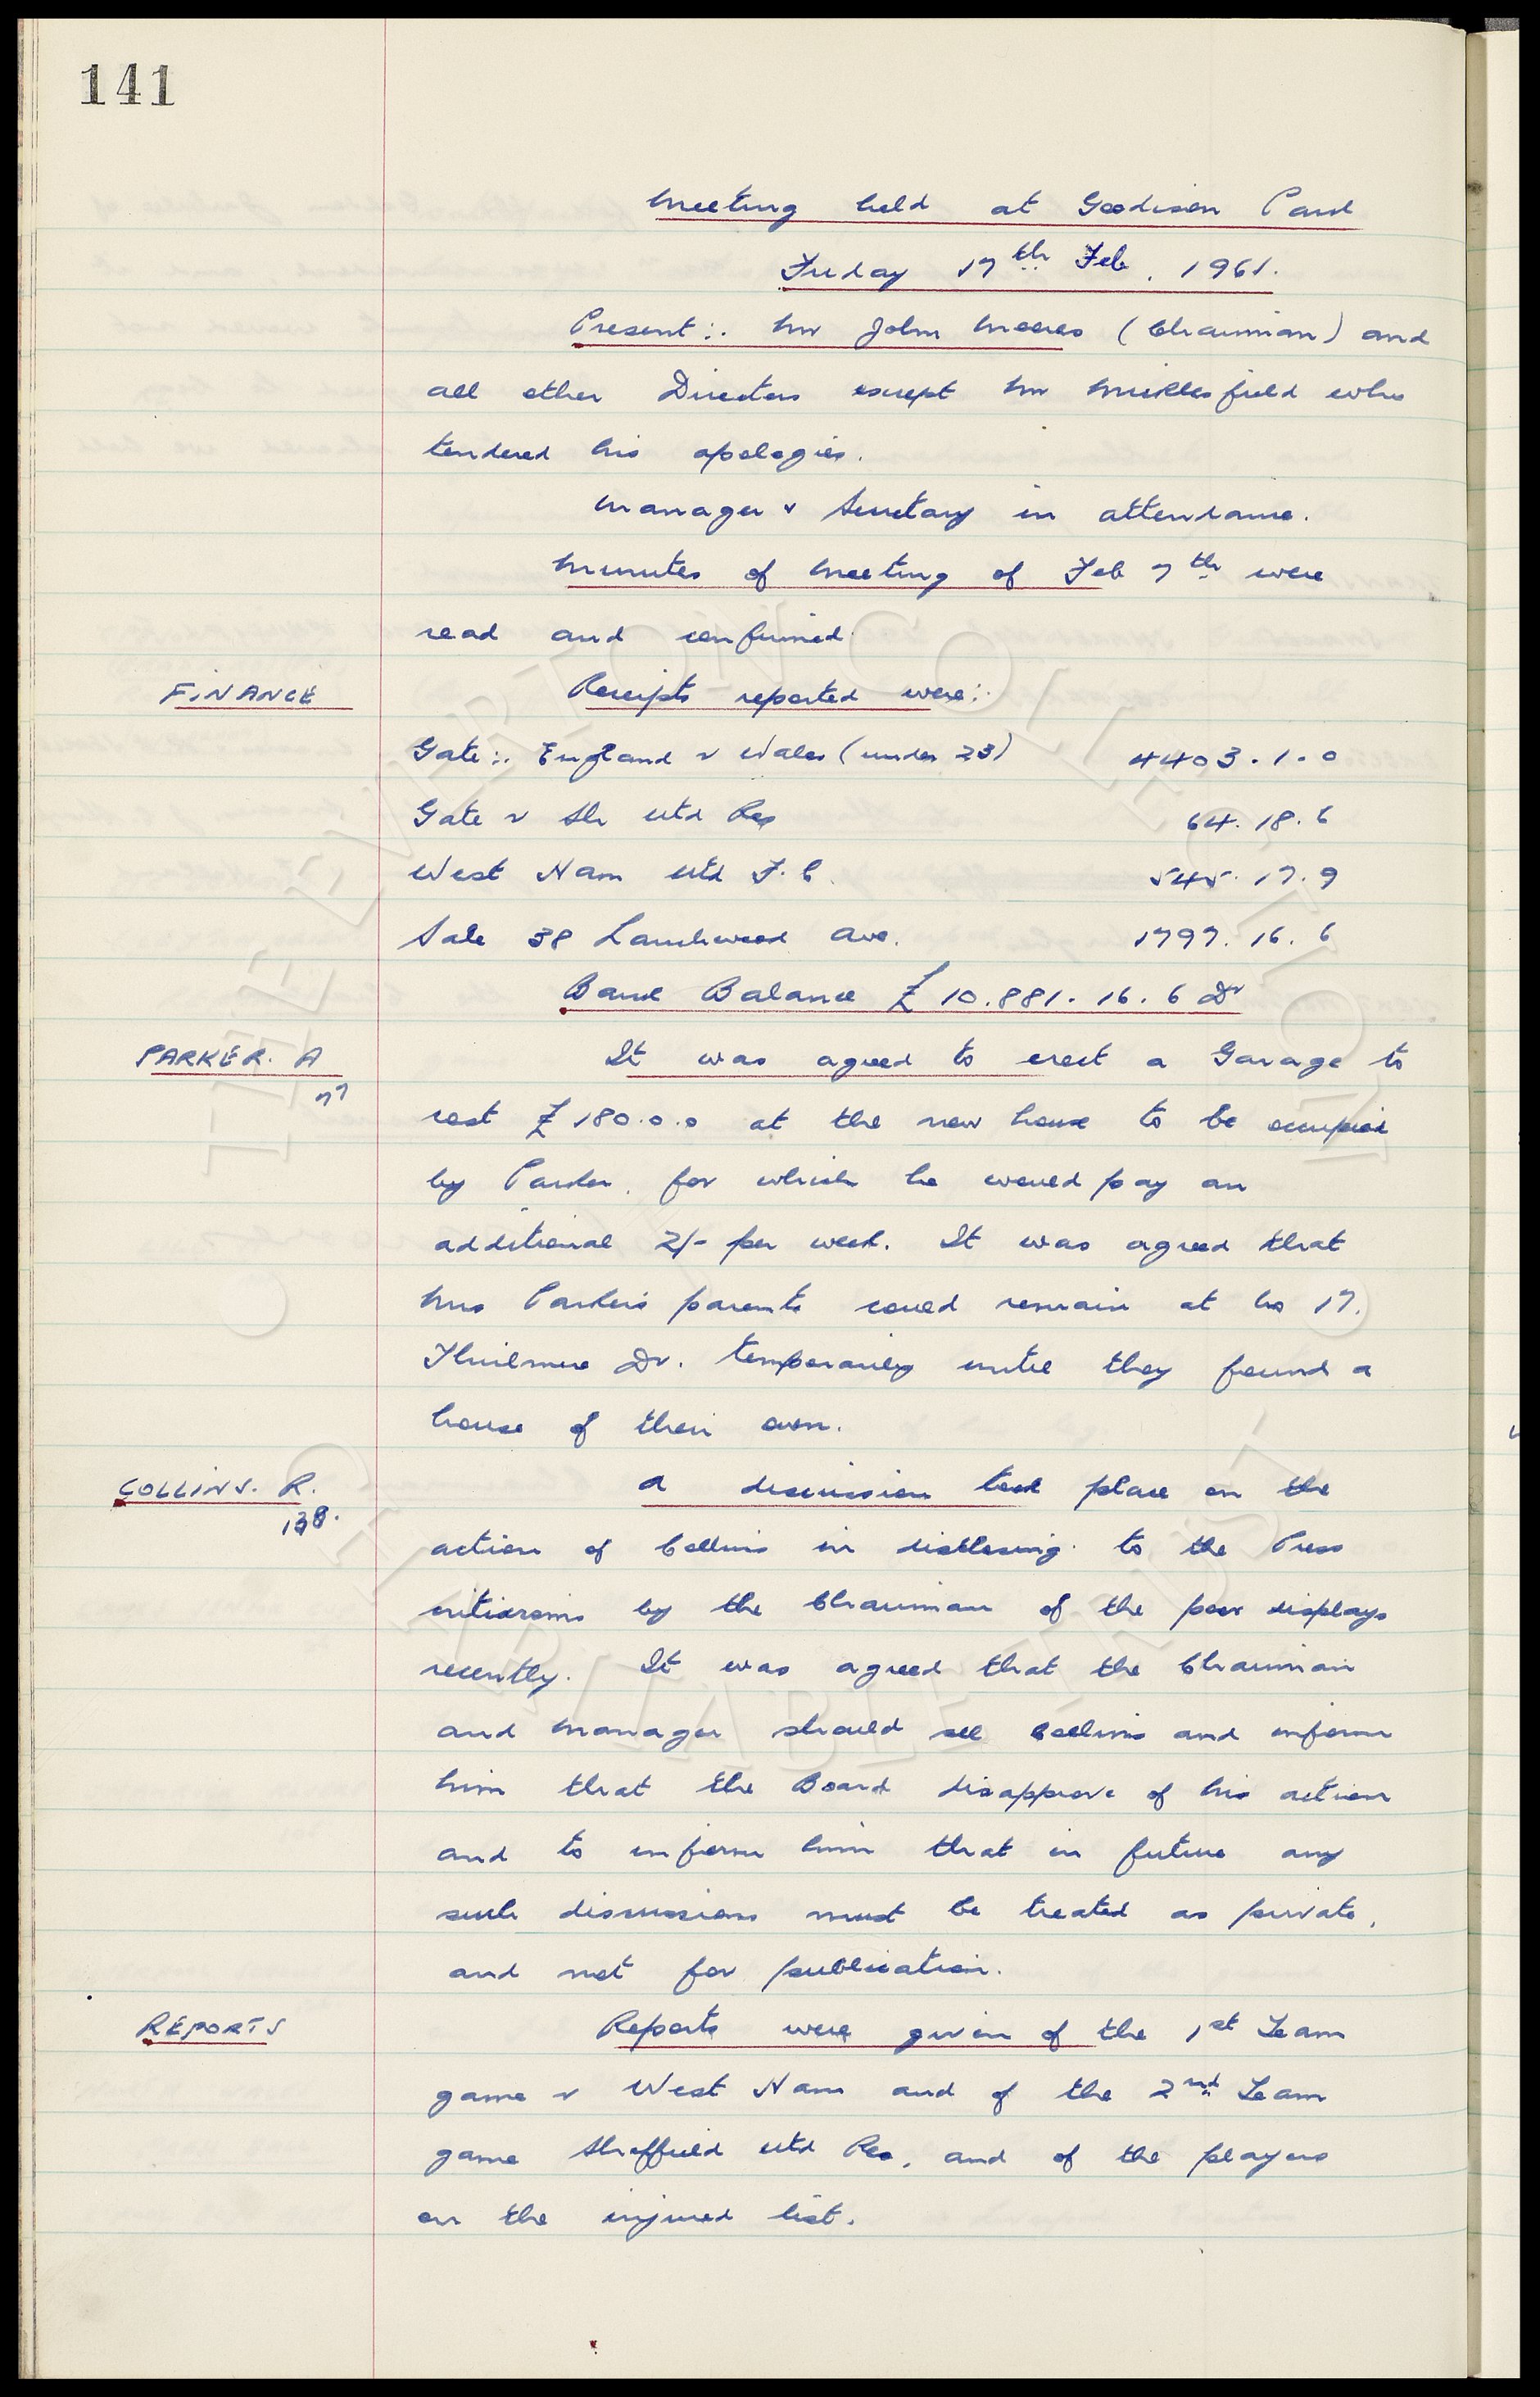 141
Meeting held at Goodison Park
Friday 17th Feb. 1961.
Present:. Mr John Moores (Chairman) and
all other Directors except Mr Micklesfield who
tendered his apologies.
Manager & Secretary in attendance.
Minutes of Meeting of Feb 7th were
read and confirmed.
FINANCE
Receipts reported were:.
Gate:. England v Wales (under 23) 4403.1.0
Gate v Sh Utd Res 64.18.6
West Ham Utd F.C. 545.17.9
Sale 38 Larchwood Ave. 1797.16.6
Bank Balance £10.881.16.6 Dr
PARKER. A
77
It was agreed to erect a Garage to
cost £180.0.0 at the new house to be occupied
by Parker, for which he would pay an
additional 2/- per week. It was agreed that
Mrs Parker's parents could remain at No 17.
Thirlmere Dr. temporarily until they found a
house of their own.
COLLINS. R.
138.
A discussion took place on the
action of Collins in disclosing to the Press
criticisms by the Chairman of the poor displays
recently. It was agreed that the Chairman
and Manager should see Collins and inform
him that the Board disapprove of his action
and to inform him that in future any
such discussions must be treated as private,
and not for publication.
REPORTS
Reports were given of the 1st Team
game v West Ham and of the 2nd Team
game Sheffield Utd Res, and of the players
on the injured list.
THE EVERTON COLLECTION
CHARITABLE TRUST